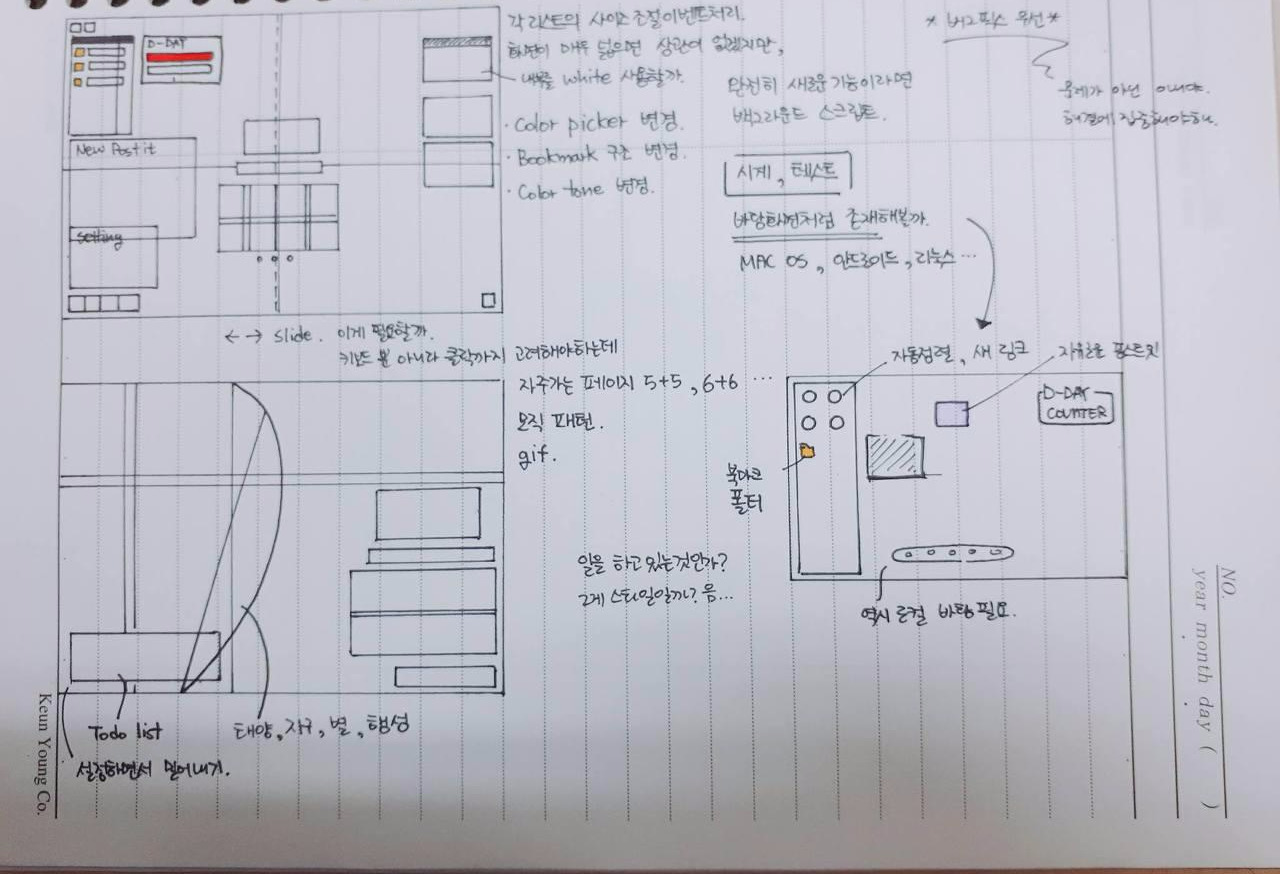 D-DAY
New Post it
setting
각 리스트의 사이즈 조절 이벤트처리.
화면이 매우 넓으면 상관이 없겠지만,
내부를 white 사용할까.
· Color picker 변경.
· Bookmark 구조 변경.
· Color tone 변경.
완전히 새로운 기능이라면
백그라운드 스크립트.
시계, 테스트
바탕화면처럼 존재해볼까.
MAC OS, 안드로이드, 리눅스 ...
* 버그픽스 우선 *
문제가 아닌 이야.
해결에 집중해야해.
← → slide. 이게 필요할까.
키보드 뿐 아니라 클릭까지 고려해야하는데
자주가는 페이지 5+5, 6+6 ...
모직 패턴.
gif.
일을 하고 있는것인가?
그게 스타일일까? 음...
Todo list
설정하면서 밀어내기.
태양, 지구, 별, 행성
자동정렬, 새 링크
자유로운 포스트잇
D-DAY
COUNTER
북마크
폴더
역시 로컬 바탕 필요.
NO.
year month day ( )
Keun Young Co.